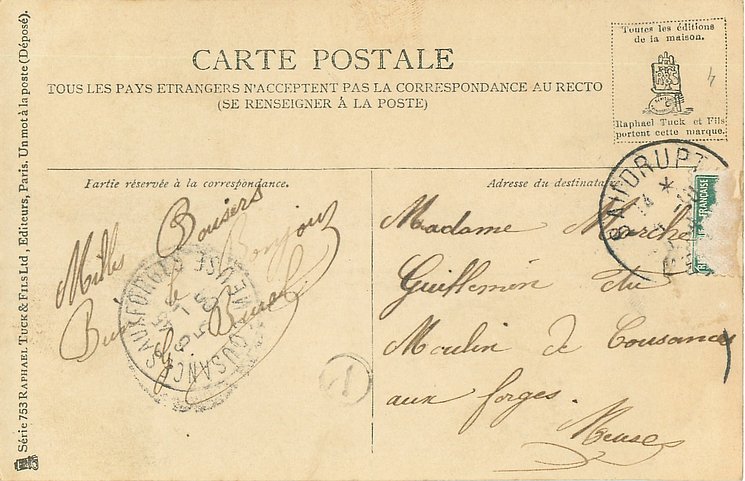 CARTE POSTALE
TOUS LES PAYS ETRANGERS N'ACCEPTENT PAS LA CORRESPONDANCE AU RECTO
(SE RENSEIGNER À LA POSTE)
Toutes les éditions
de la maison.
Raphael Tuck et Fils
portent cette marque.
4
Série 753 RAPHAEL TUCK & FILS Ltd, Editeurs, Paris. Un mot à la poste (Déposé).
Partie réservée à la correspondance.
Milles Baisers
Bonjour
COUSANCES AUX FORGES
MEUSE
1
Adresse du destinataire
BAUDRUPT
FRANÇAISE
Madame
Guillemin du
Moulin de Cousances
aux forges.
Meuse